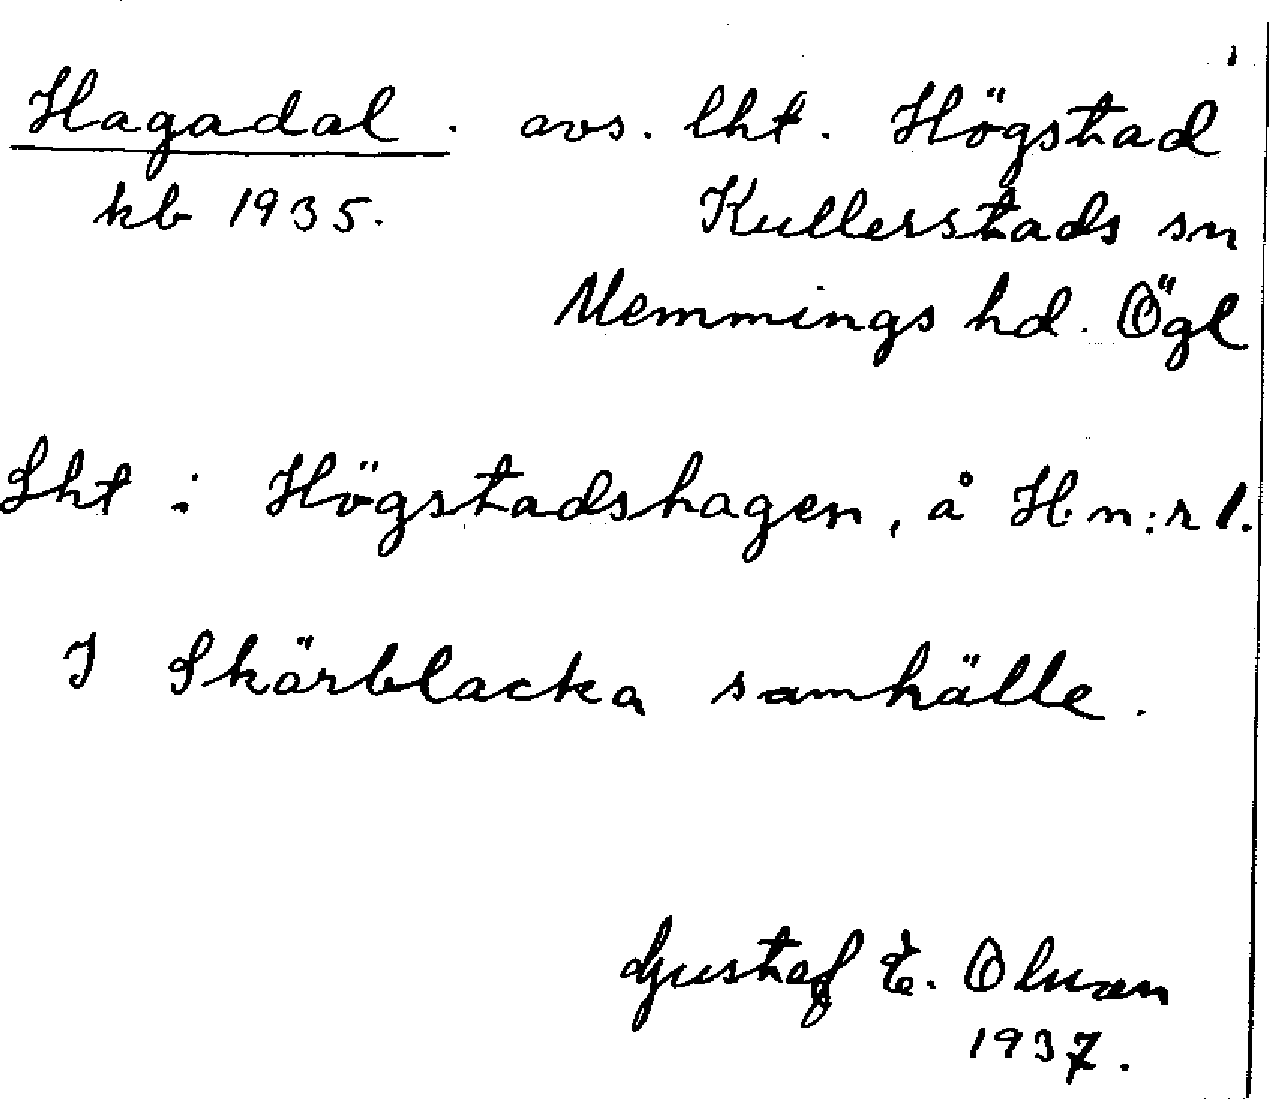 Hagadal. avs. lht. Högstad
kb 1935. Kullerstads sn
Memmings hd. Ögl
Lht i Högstadshagen, å H n:r 1.
I Skärblacka samhälle.
Gustaf E. Olsson
1937.